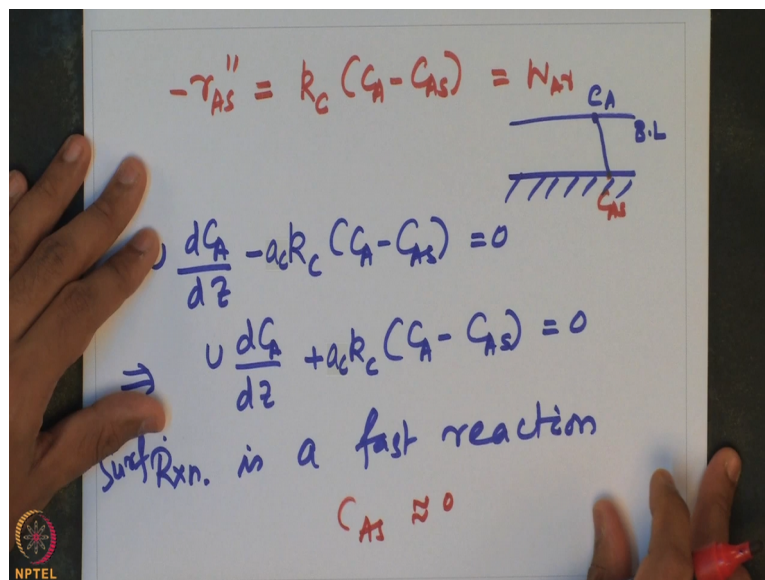 -r"AS = kc (CA - CAS) = WAr
CA
B.L
CAS
U dCA/dz - ackc (CA - CAS) = 0
⇒ U dCA/dz + ackc (CA - CAS) = 0
Surf Rxn. is a fast reaction
CAS ≈ 0
NPTEL